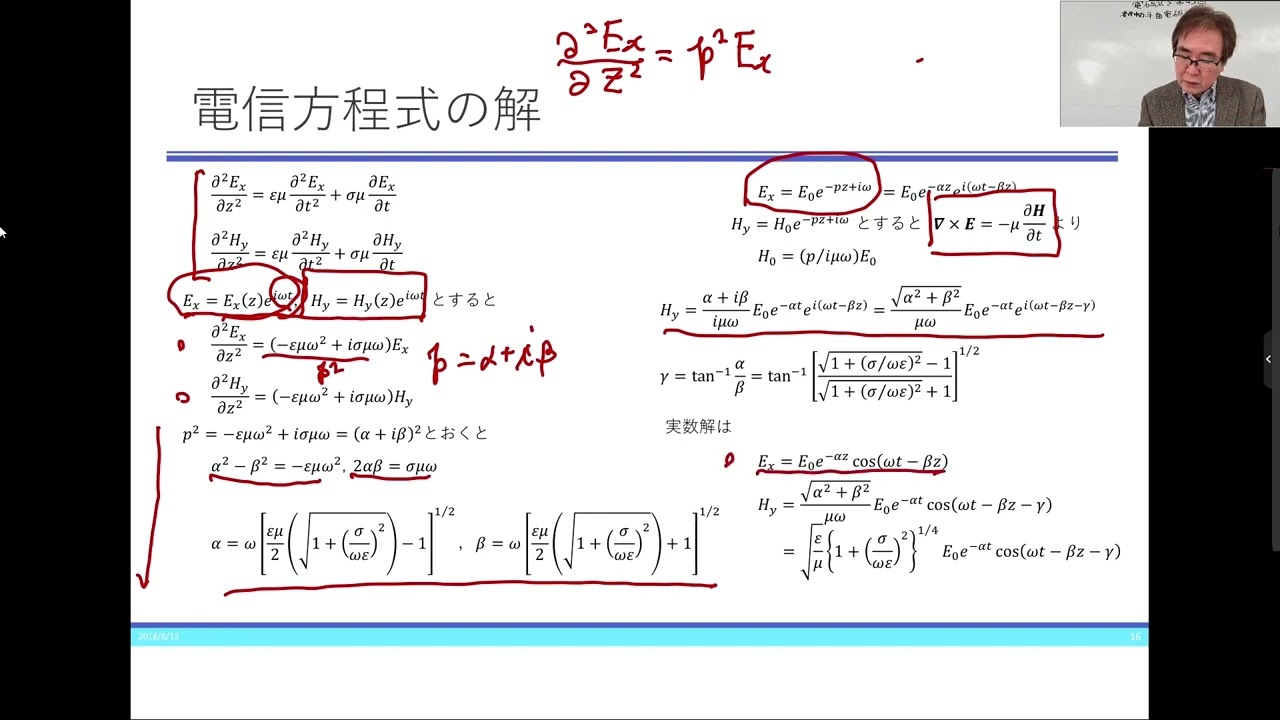 ∂²Ex/∂z² = p²Ex
電信方程式の解
∂²Ex/∂z² = εμ ∂²Ex/∂t² + σμ ∂Ex/∂t
∂²Hy/∂z² = εμ ∂²Hy/∂t² + σμ ∂Hy/∂t
Ex = Ex(z)e^{iωt}, Hy = Hy(z)e^{iωt} とすると
∂²Ex/∂z² = (−εμω² + iσμω)Ex
p²
p = α + iβ
∂²Hy/∂z² = (−εμω² + iσμω)Hy
p² = −εμω² + iσμω = (α + iβ)²とおくと
α² − β² = −εμω², 2αβ = σμω
α = ω[εμ/2(√(1 + (σ/ωε)²) − 1]^{1/2} , β = ω[εμ/2(√(1 + (σ/ωε)²) + 1]^{1/2}
Ex = E₀e^{−pz+iω} = E₀e^{−αz}e^{i(ωt−βz)}
Hy = H₀e^{−pz+iω} とすると ∇ × E = −μ ∂H/∂t より
H₀ = (p/iμω)E₀
Hy = (α + iβ)/(iμω) E₀e^{−αt}e^{i(ωt−βz)} = √(α² + β²)/(μω) E₀e^{−αt}e^{i(ωt−βz−γ)}
γ = tan⁻¹ α/β = tan⁻¹ [(√(1 + (σ/ωε)²) − 1)/(√(1 + (σ/ωε)²) + 1)]^{1/2}
実数解は
Ex = E₀e^{−αz} cos(ωt − βz)
Hy = √(α² + β²)/(μω) E₀e^{−αt} cos(ωt − βz − γ)
= √(ε/μ){1 + (σ/ωε)²}^{1/4} E₀e^{−αt} cos(ωt − βz − γ)
2018/8/13
16